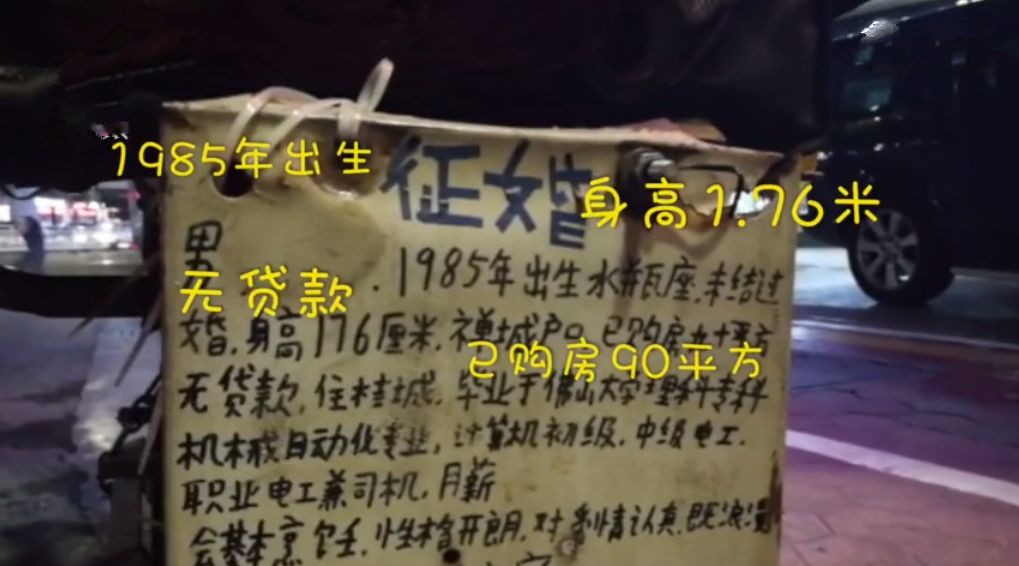 1985年出生
征婚
身高1.76米
男
.1985年出生水瓶座.未结过
无贷款
婚.身高176厘米.禅城户口.已购房九十平方
已购房90平方
无贷款.住桂城.毕业于佛山大学理科专科
机械自动化专业,计算机初级.中级电工.
职业电工兼司机.月薪
会基本烹饪.性格开朗.对爱情认真.既浪漫